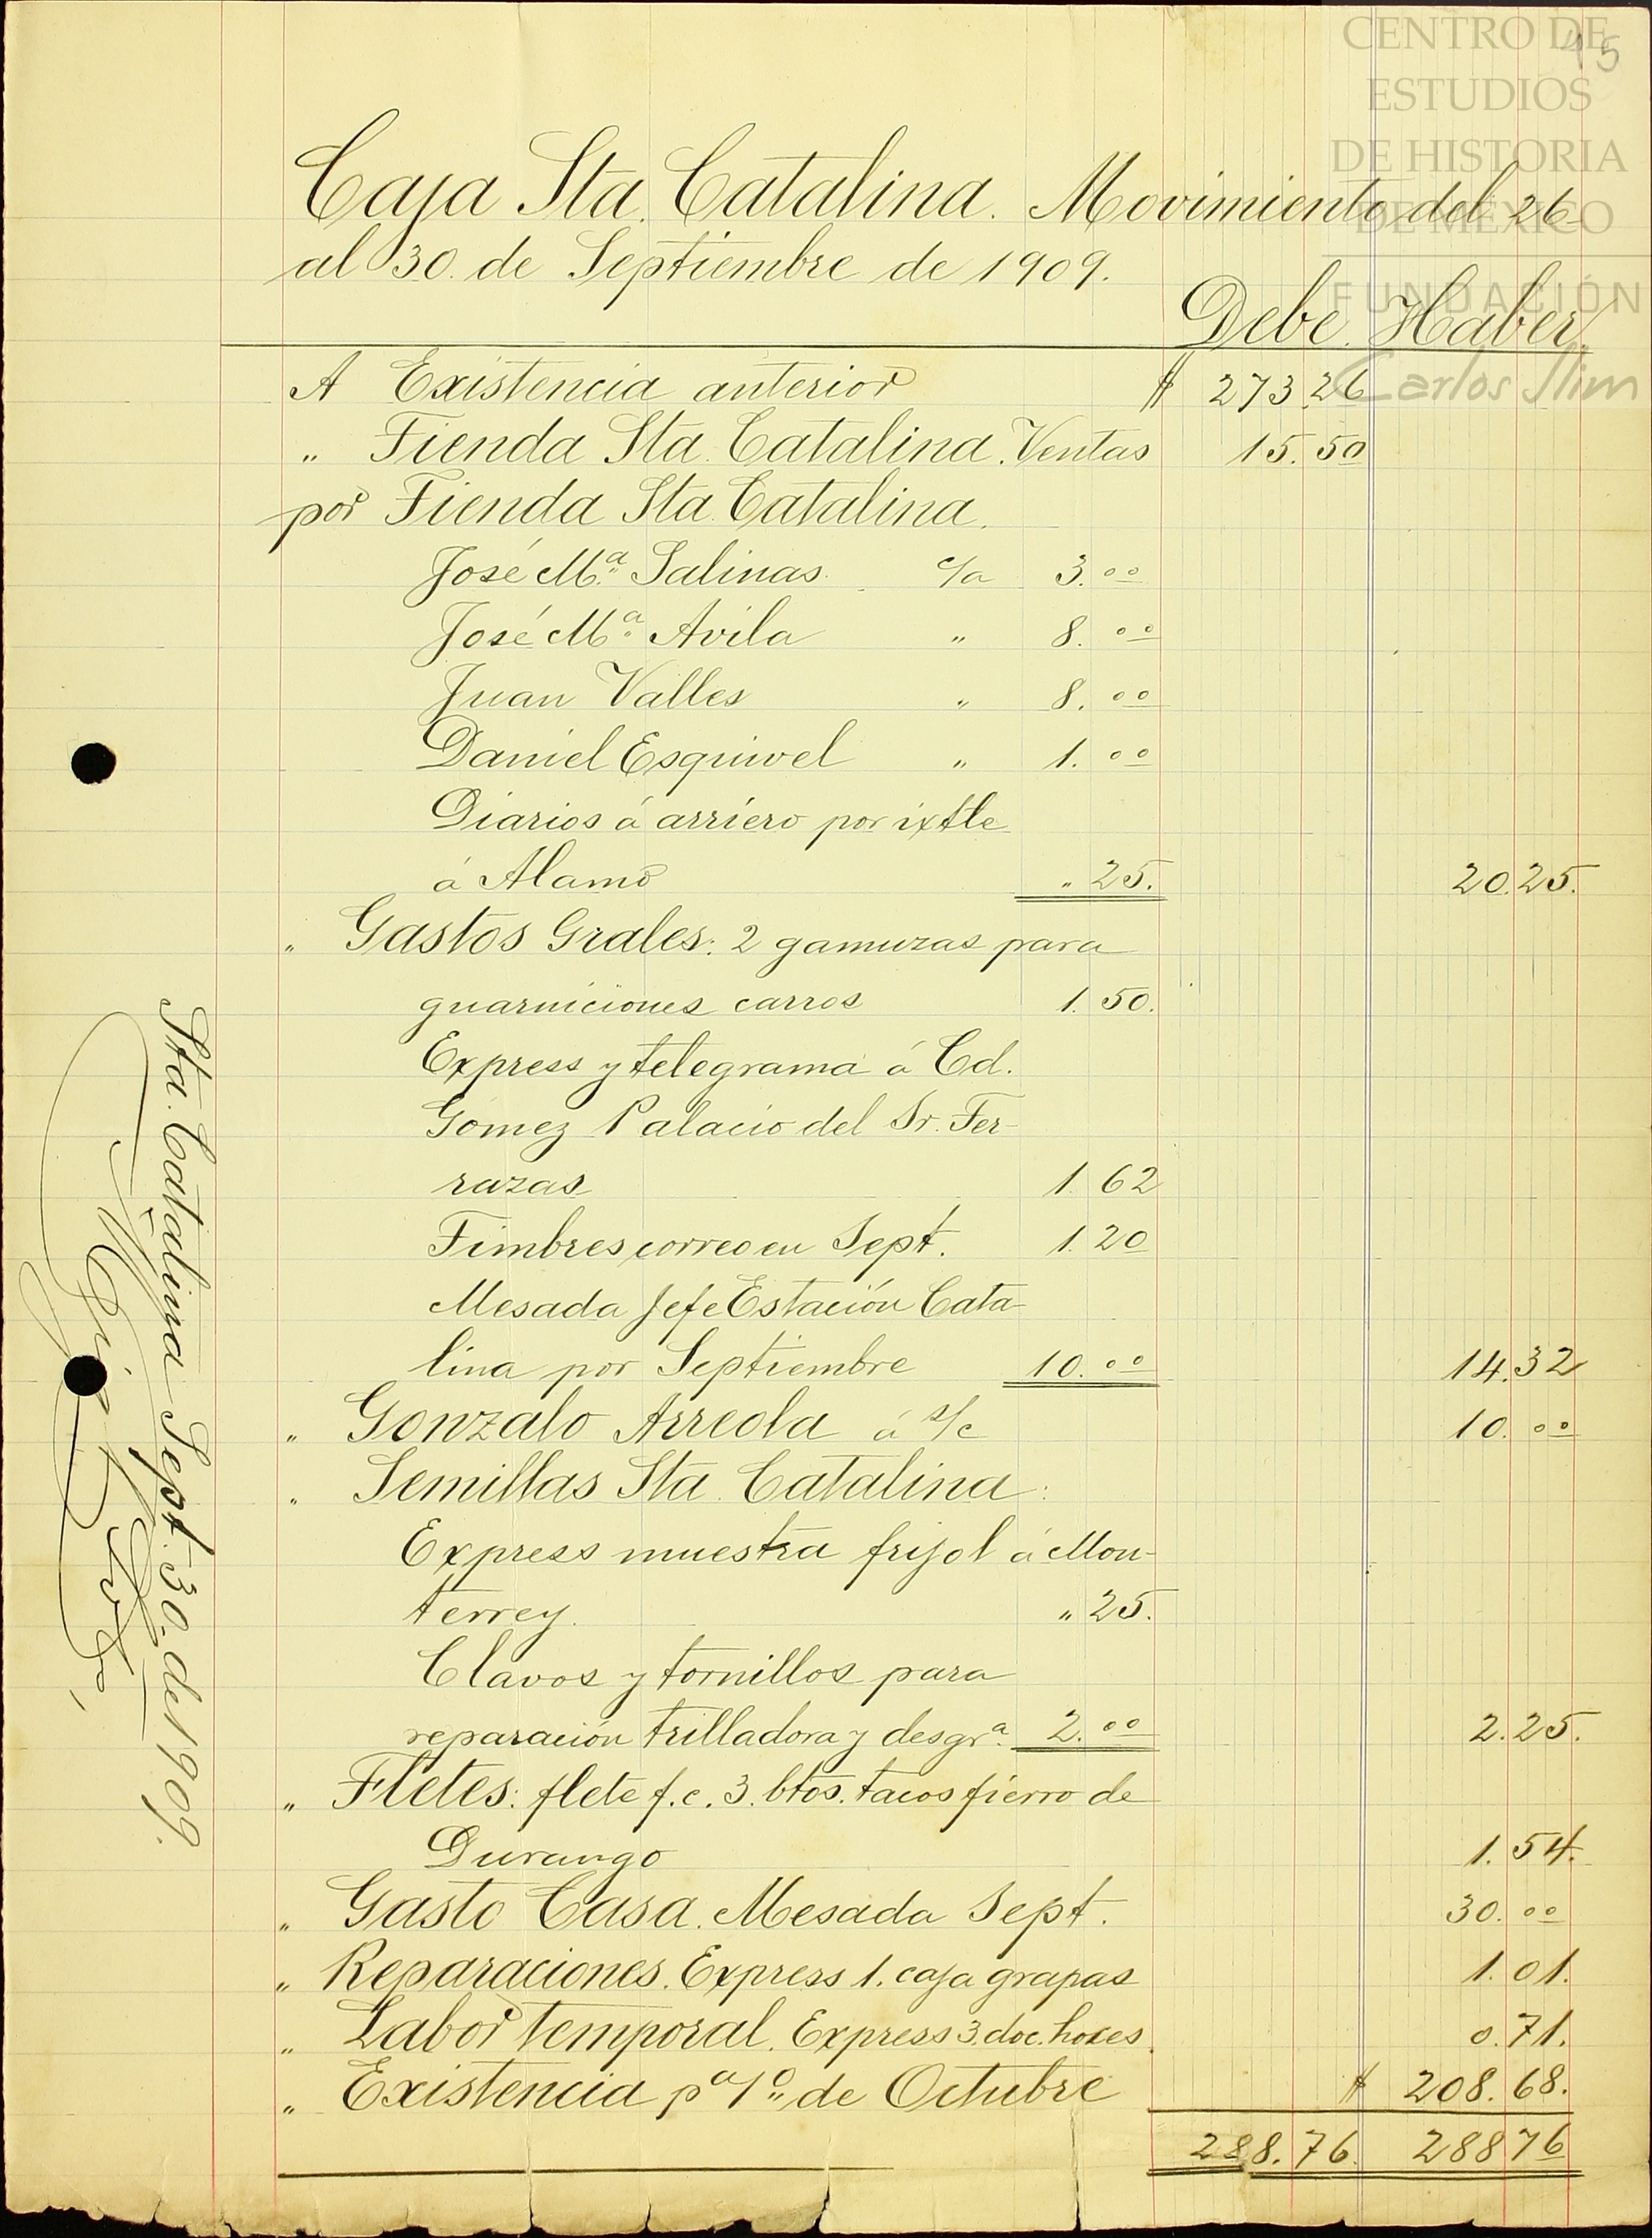 45
CENTRO DE
ESTUDIOS
DE HISTORIA
DE MÉXICO
FUNDACIÓN
Carlos Slim
Caja Sta. Catalina. Movimiento del 26
al 30. de Septiembre de 1909.
Debe. Haber.
A Existencia anterior $ 273.26
" Tienda Sta Catalina. Ventas 15.50
por Tienda Sta Catalina.
José Mª Salinas. c/a 3.00
José Mª Avila " 8.00
Juan Valles " 8.00
Daniel Esquivel " 1.00
Diarios á arriero por ixtle
á Alamo " 25. 20.25.
" Gastos Grales: 2 gamuzas para
guarniciones carros 1.50.
Express y telegrama á Cd.
Gómez Palacio del Sr. Ter-
razas 1.62
Timbres correo en Sept. 1.20
Mesada Jefe Estación Cata-
lina por Septiembre 10.00 14.32
" Gonzalo Arreola á s/c 10.00
" Semillas Sta. Catalina:
Express muestra frijol á Mon-
terrey. " 25.
Clavos y tornillos para
reparación trilladora y desgrª. 2.00 2.25.
" Fletes: flete f.c. 3. btos. tacos fierro de
Durango 1.54.
" Gasto Casa. Mesada Sept. 30.00
" Reparaciones. Express 1. caja grapas 1.01.
" Labor temporal. Express 3. doc. hoces 0.71.
" Existencia pª 1º de Octubre $ 208.68.
288.76. 28876
Sta. Catalina Sept. 30. de 1909.